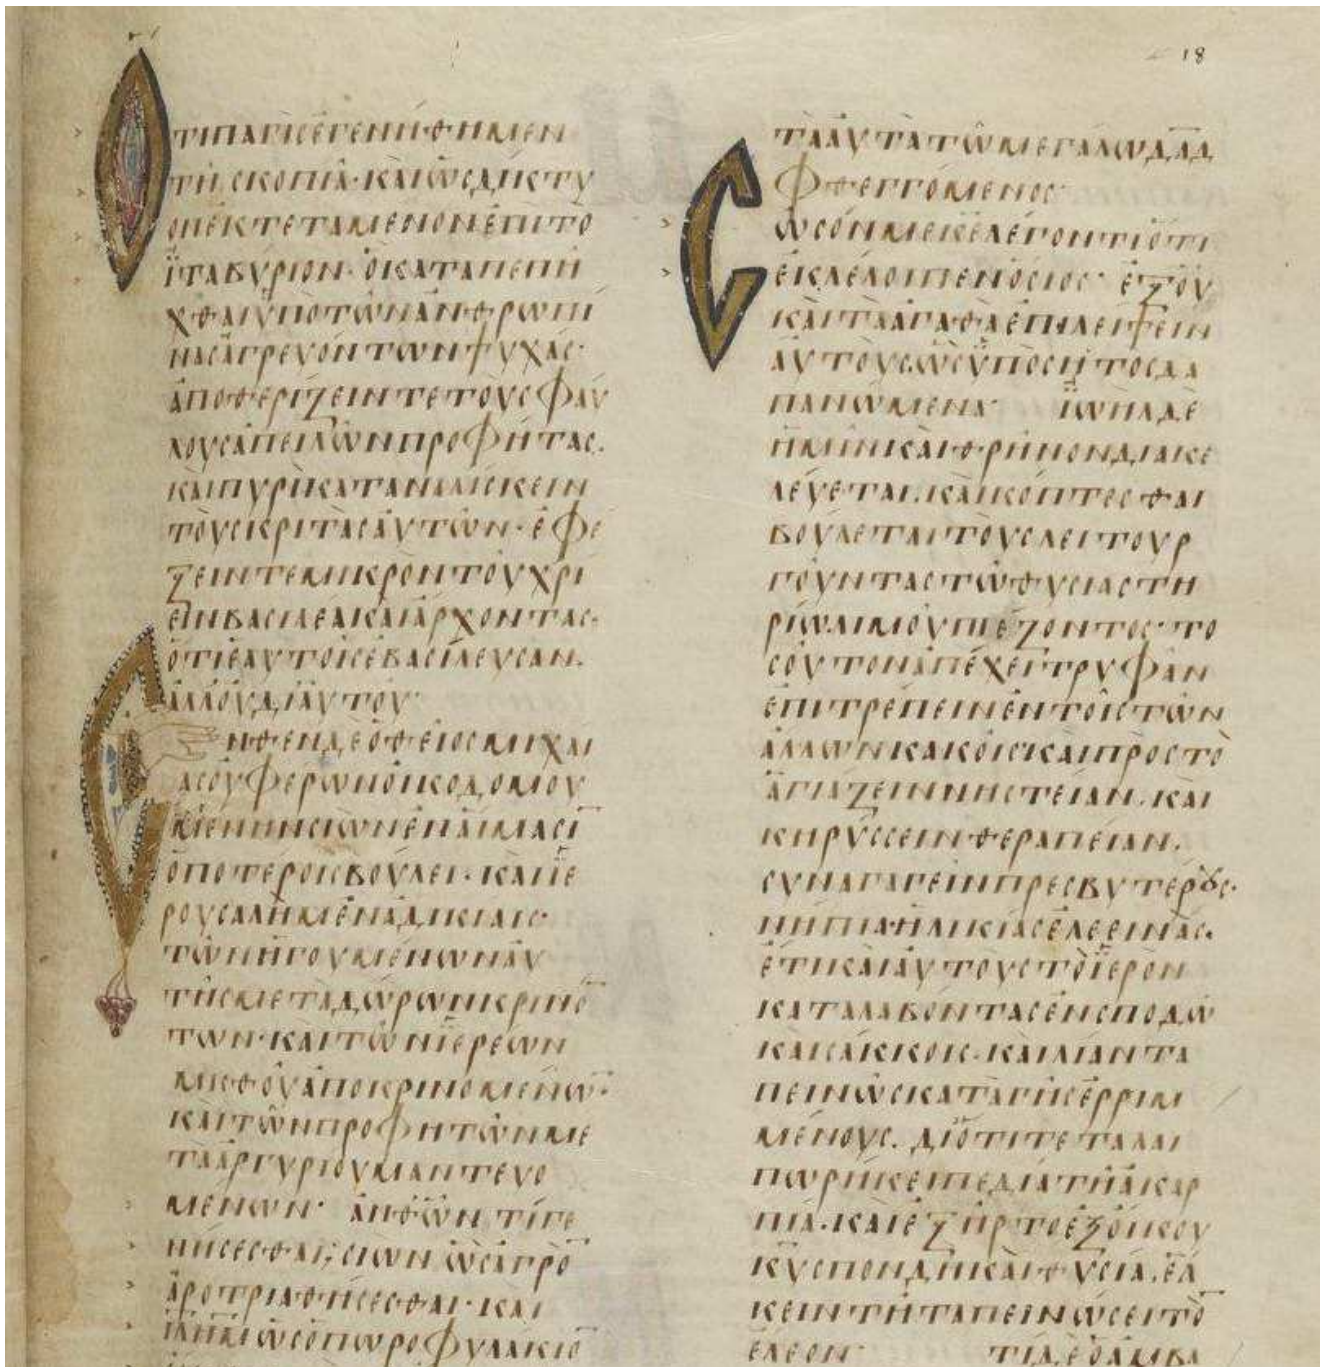 ΟΤΙΠΑΓΙϹΕΓΕΝΗΘΗΜΕΝ
ΤΗϹΚΟΠΙΑ·ΚΑΙΩϹΔΙΚΤΥ
ΟΝΕΚΤΕΤΑΜΕΝΟΝΕΠΙΤΟ
ΪΤΑΒΥΡΙΟΝ·ΟΚΑΤΑΠΕΠΗ
ΧΘΑΙΫΠΟΤΩΝΑΝΘΡΩΠΙ
ΝΑϹΑΓΡΕΥΟΝΤΩΝΨΥΧΑϹ·
ΑΠΟΘΕΡΙΖΕΙΝΤΕΤΟΥϹΦΑΥ
ΛΟΥϹΑΠΕΙΛΩΝΠΡΟΦΗΤΑϹ.
ΚΑΙΠΥΡΙΚΑΤΑΝΑΛΙϹΚΕΙΝ
ΤΟΥϹΚΡΙΤΑϹΑΥΤΩΝ·ΕΦΕ
ΖΕΙΝΤΕΜΙΚΡΟΝΤΟΥΧΡΙ
ΕΙΝΒΑϹΙΛΕΑΚΑΙΑΡΧΟΝΤΑϹ·
ΟΤΙΕΑΥΤΟΙϹΕΒΑϹΙΛΕΥϹΑΝ.
ΑΛΛΟΥΔΙΑΥΤΟΥ·
ΕΝΘΕΝΔΕΟΘΕΙΟϹΜΙΧΑΙ
ΑϹΟΥΦΕΡΩΝΟΙΚΟΔΟΜΟΥ
ΜΕΝΗΝϹΙΩΝΕΝΑΙΜΑϹΙ̅
ΟΠΟΤΕΡΟΙϹΒΟΥΛΕΙ·ΚΑΙΪΕ
ΡΟΥϹΑΛΗΜΕΝΑΔΙΚΙΑΙϹ·
ΤΩΝΗΓΟΥΜΕΝΩΝΑΥ
ΤΗϹΜΕΤΑΔΩΡΩΝΚΡΙΝΟ̅
ΤΩΝ·ΚΑΙΤΩΝΪΕΡΕΩΝ
ΜΙϹΘΟΥΑΠΟΚΡΙΝΟΜΕΝΩ̅·
ΚΑΙΤΩΝΠΡΟΦΗΤΩΝΜΕ
ΤΑΑΡΓΥΡΙΟΥΜΑΝΤΕΥΟ
ΜΕΝΩΝ· ΑΝΘΩΝΤΙΓΕ
ΝΗϹΕϹΘΑΙ;ϹΙΩΝΩϹΑΓΡΟ̅
ΑΡΟΤΡΙΑΘΗϹΕϹΘΑΙ·ΚΑΙ
ΙΛΗΜΩϹΟΠΩΡΟΦΥΛΑΚΙΟ̅
18
ΤΑΑΥΤΑΤΩΜΕΓΑΛΩΔΑΔ
ΦΘΕΓΓΟΜΕΝΟϹ·
ΩϹΟΝΜΕΚΕΛΕΓΟΝΤΙΟΤΙ
ΕΚΛΕΛΟΙΠΕΝΟϹΙΟϹ· ΕΞΟΥ
ΚΑΙΤΑΑΓΑΘΑΕΠΙΛΕΙΨΕΙΝ
ΑΥΤΟΥϹΩϹΫΠΟϹΗΤΟϹΔΑ
ΠΑΝΩΜΕΝΑ· ΪΩΗΛΔΕ
ΗΜΙΝΚΑΙΘΡΗΝΟΝΔΙΑΚΕ
ΛΕΥΕΤΑΙ.ΚΑΙΚΟΠΤΕϹΘΑΙ
ΒΟΥΛΕΤΑΙΤΟΥϹΛΕΙΤΟΥΡ
ΓΟΥΝΤΑϹΤΩΘΥϹΙΑϹΤΗ
ΡΙΩΛΙΜΟΥΠΙΕΖΟΝΤΟϹ·ΤΟ
ϹΟΥΤΟΝΑΠΕΧΕΙΤΡΥΦΑΝ
ΕΠΙΤΡΕΠΕΙΝΕΝΤΟΙϹΤΩΝ
ΑΛΛΩΝΚΑΚΟΙϹΚΑΙΠΡΟϹΤΟ
ΑΓΙΑΖΕΙΝΝΗϹΤΕΙΑΝ.ΚΑΙ
ΚΗΡΥϹϹΕΙΝΘΕΡΑΠΕΙΑΝ.
ϹΥΝΑΓΑΓΕΙΝΠΡΕϹΒΥΤΕΡȢϹ·
ΝΗΠΙΑΗΛΙΚΙΑϹΕΛΕΕΙΝΑϹ.
ΕΤΙΚΑΙΑΥΤΟΥϹΤΟΪΕΡΟΝ
ΚΑΤΑΛΑΒΟΝΤΑϹΕΝϹΠΟΔΩ
ΚΑΙϹΑΚΚΟΙϹ·ΚΑΙΛΙΑΝΤΑ
ΠΕΙΝΩϹΚΑΤΑΓΗϹΕΡΡΙΜ
ΜΕΝΟΥϹ. ΔΙΟΤΙΤΕΤΑΛΑΙ
ΠΩΡΗΚΕΠΕΔΙΑΤΗΑΚΑΡ
ΠΙΑ·ΚΑΙΕΞΗΡΤΟΕΞΟΙΚΟΥ
Κ̅Υ̅ϹΠΟΝΔΗΚΑΙΘΥϹΙΑ.ΕΛ
ΚΕΙΝΤΗΤΑΠΕΙΝΩϹΕΙΤΟ̅
ΕΛΕΟΝ· ΤΙΔΕΟΑΜΒΑ